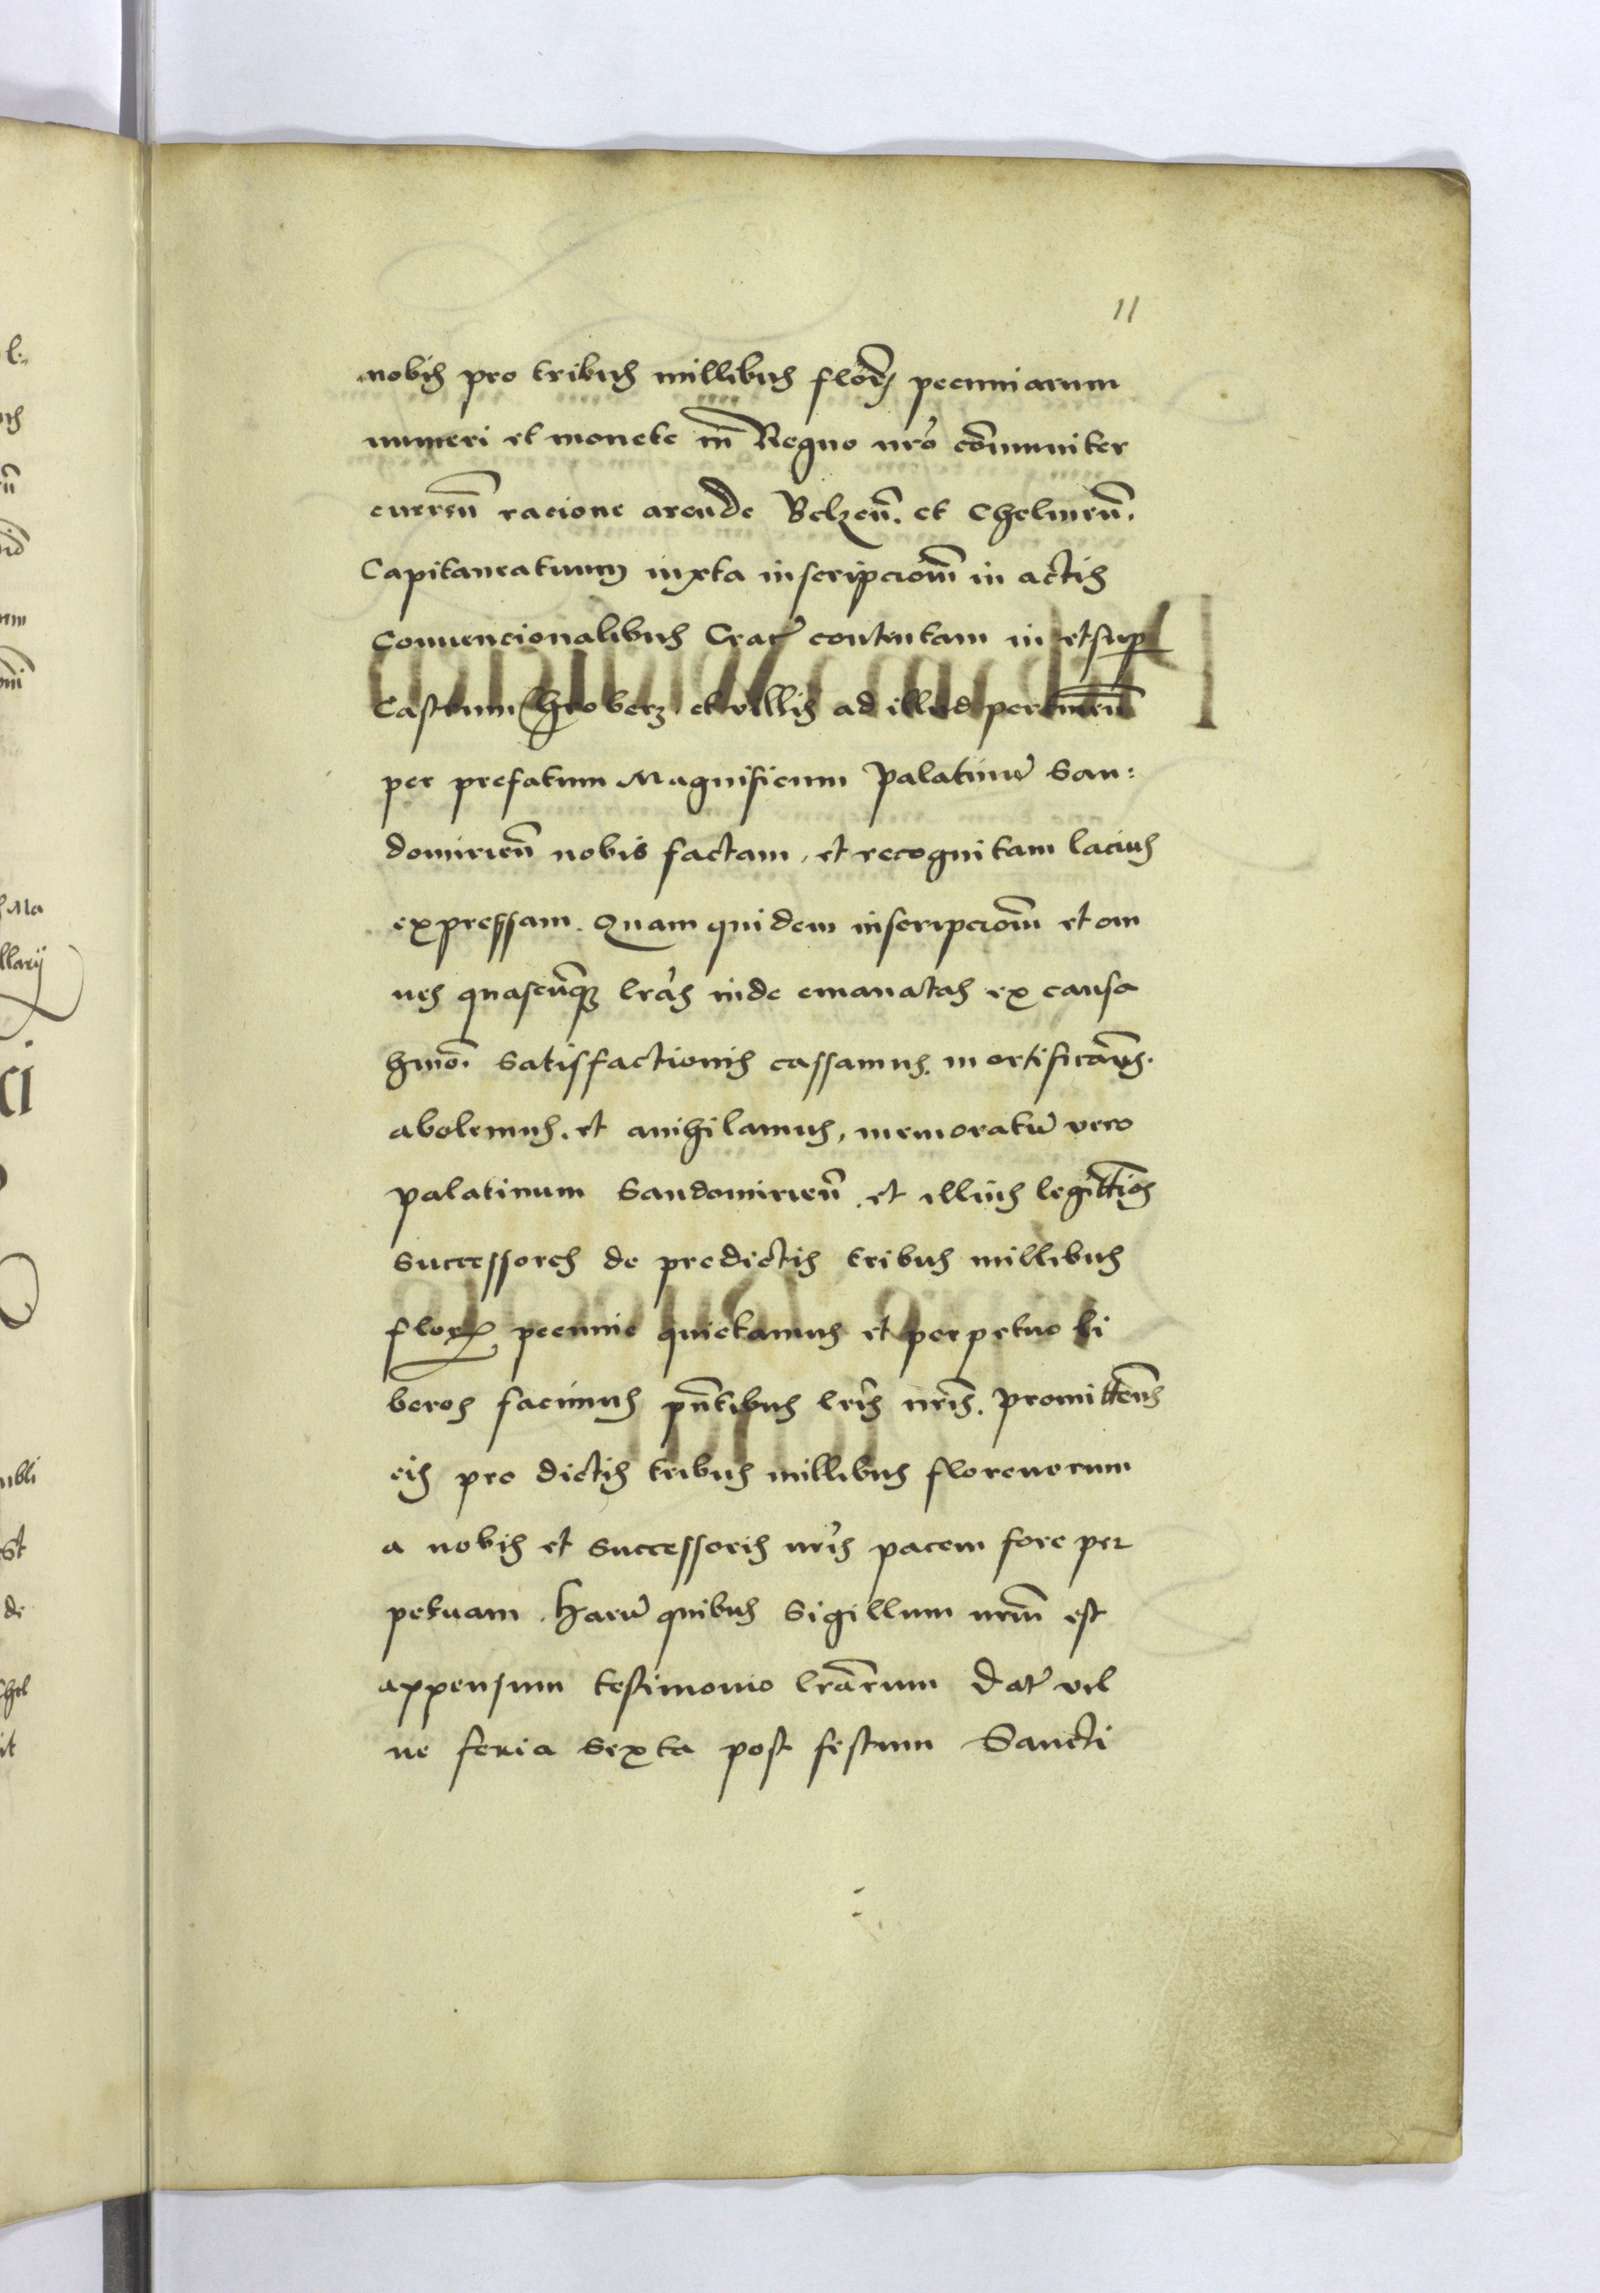 11
nobis pro tribus millibus floreñ pecuniarum
numeri et monete in Regno nr̃o com̃uniter
curreñ racione arende Belzeñ. et Chelmeñ.
Capitaneatuum iuxta inscripcioñ in actis
Convencionalibus Crac̃ contentam in et sup
Castrum Hroberz et villis ad illud pertineñ
per prefatum Magnificum Palatinũ San:
domirieñ nobis factam, et recognitam lacius
expressam. Quam quidem inscripcioñ et om
nes quascũq; lr̃as inde emanatas ex causa
hmõi satisfactionis cassamus. mortificam̃s.
abolemus. et anihilamus, memoratũ vero
palatinum Sandomirieñ. et illius legittĩos
Successores de predictis tribus millibus
floreñ pecunie quietamus et perpetuo li
beros facimus pñtibus lr̃is nr̃is. Promitteñs
eis pro dictis tribus millibus florenorum
a nobis et Successoris nr̃is pacem fore per
petuam. Harũ quibus Sigillum nr̃m est
appensum testimonio lr̃arum Dat̃ vil
ne feria Sexta post festum Sancti